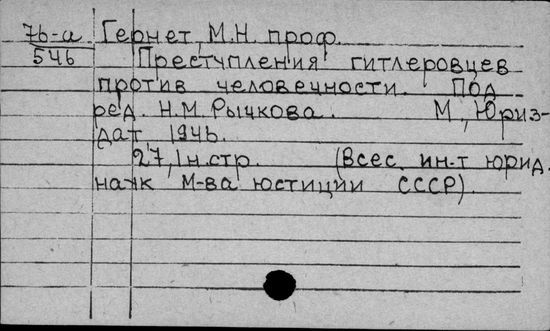 76-а Гернет, М.Н. проф.
546 Преступления гитлеровцев
против человечности. Под
ред. Н.М. Рычкова. М., Юриз-
дат, 1946.
27, 1 н.стр. (Всес. ин-т юрид.
наук М-ва юстиции СССР).